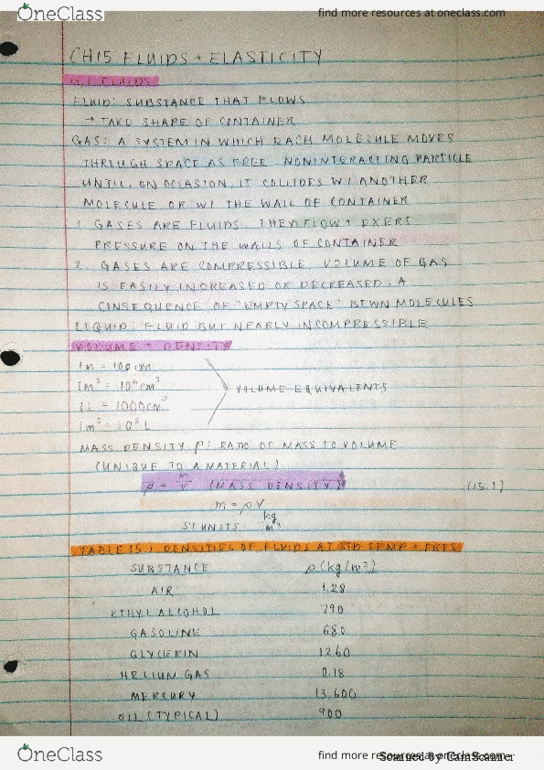 OneClass find more resources at oneclass.com
CH15 FLUIDS + ELASTICITY
15.1 FLUIDS
FLUID: SUBSTANCE THAT FLOWS
→ TAKE SHAPE OF CONTAINER
GAS: A SYSTEM IN WHICH EACH MOLECULE MOVES
THROUGH SPACE AS FREE, NONINTERACTING PARTICLE
UNTIL, ON OCCASION, IT COLLIDES W/ ANOTHER
MOLECULE OR W/ THE WALL OF CONTAINER
1. GASES ARE FLUIDS. THEY FLOW + EXERT
PRESSURE ON THE WALLS OF CONTAINER
2. GASES ARE COMPRESSIBLE. VOLUME OF GAS
IS EASILY INCREASED OR DECREASED, A
CONSEQUENCE OF "EMPTY SPACE" BTWN MOLECULES
LIQUID: FLUID BUT NEARLY INCOMPRESSIBLE
VOLUME + DENSITY
1m = 100 cm
1m³ = 10⁶ cm³
1L = 1000 cm³
1m³ = 10³ L
VOLUME EQUIVALENTS
MASS DENSITY ρ: RATIO OF MASS TO VOLUME
(UNIQUE TO A MATERIAL)
ρ = m/V (MASS DENSITY) (15.1)
m = ρV
SI UNITS: kg/m³
TABLE 15.1 DENSITIES OF FLUIDS AT STD TEMP + PRES
SUBSTANCE ρ(kg/m³)
AIR 1.28
ETHYL ALCOHOL 790
GASOLINE 680
GLYCERIN 1260
HELIUM GAS 0.18
MERCURY 13,600
OIL (TYPICAL) 900
OneClass find more resources at oneclass.com
Scanned by CamScanner